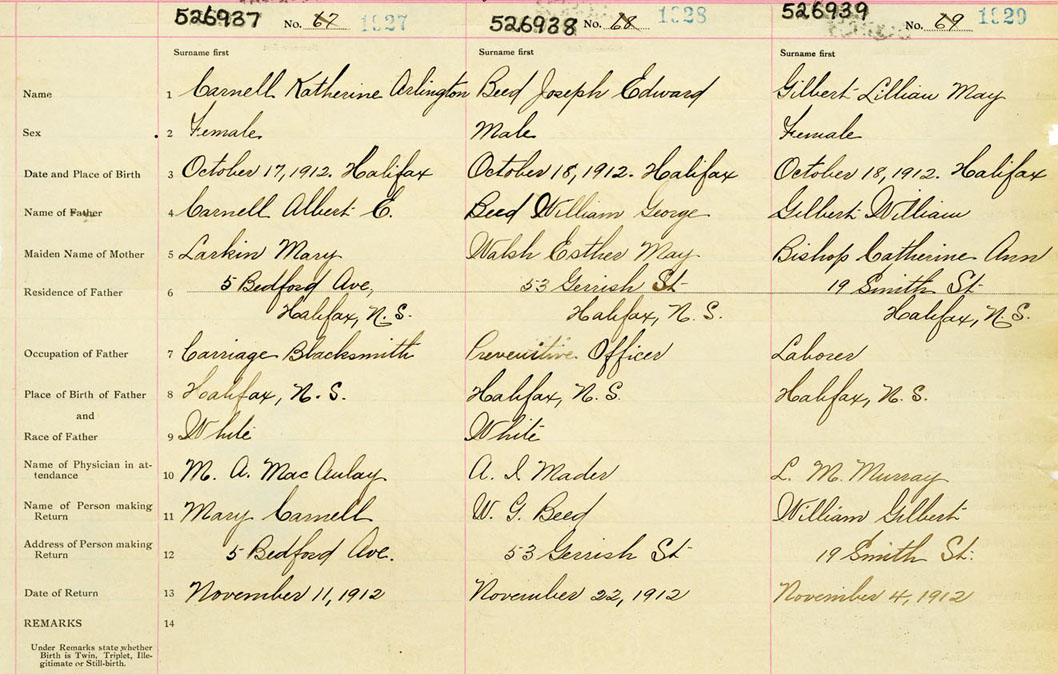 526937 No. 67 1327 526938 No. 68 1328 526939 No. 69 1329
Surname first Surname first Surname first
Name 1 Carnell Katherine Arlington Beed Joseph Edward Gilbert Lillian May
Sex 2 Female Male Female
Date and Place of Birth 3 October 17, 1912. Halifax October 18, 1912. Halifax October 18, 1912. Halifax
Name of Father 4 Carnell Albert E. Beed William George Gilbert William
Maiden Name of Mother 5 Larkin Mary Walsh Esther May Bishop Catherine Ann
Residence of Father 6 5 Bedford Ave, 53 Gerrish St 19 Smith St
Halifax, N.S. Halifax, N.S. Halifax, N.S.
Occupation of Father 7 Carriage Blacksmith Preventive Officer Laborer
Place of Birth of Father 8 Halifax, N.S. Halifax, N.S. Halifax, N.S.
and
Race of Father 9 White White
Name of Physician in at-
tendance 10 M. A. MacAulay A. I Mader L. M. Murray
Name of Person making
Return 11 Mary Carnell W. G. Beed William Gilbert
Address of Person making
Return 12 5 Bedford Ave. 53 Gerrish St 19 Smith St.
Date of Return 13 November 11, 1912 November 22, 1912 November 4, 1912
REMARKS 14
Under Remarks state whether
Birth is Twin, Triplet, Ille-
gitimate or Still-birth.